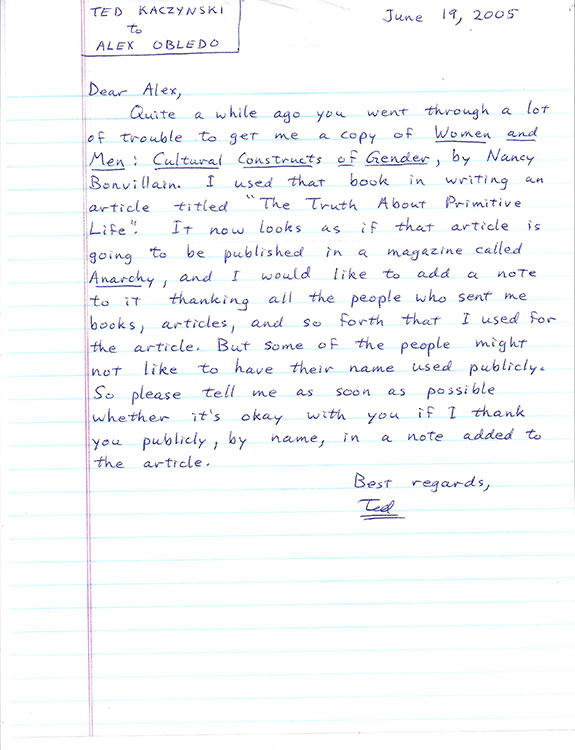 TED KACZYNSKI
to
ALEX OBLEDO
June 19, 2005
Dear Alex,
Quite a while ago you went through a lot
of trouble to get me a copy of Women and
Men: Cultural Constructs of Gender, by Nancy
Bonvillain. I used that book in writing an
article titled "The Truth About Primitive
Life". It now looks as if that article is
going to be published in a magazine called
Anarchy, and I would like to add a note
to it thanking all the people who sent me
books, articles, and so forth that I used for
the article. But some of the people might
not like to have their name used publicly.
So please tell me as soon as possible
whether it's okay with you if I thank
you publicly, by name, in a note added to
the article.
Best regards,
Ted